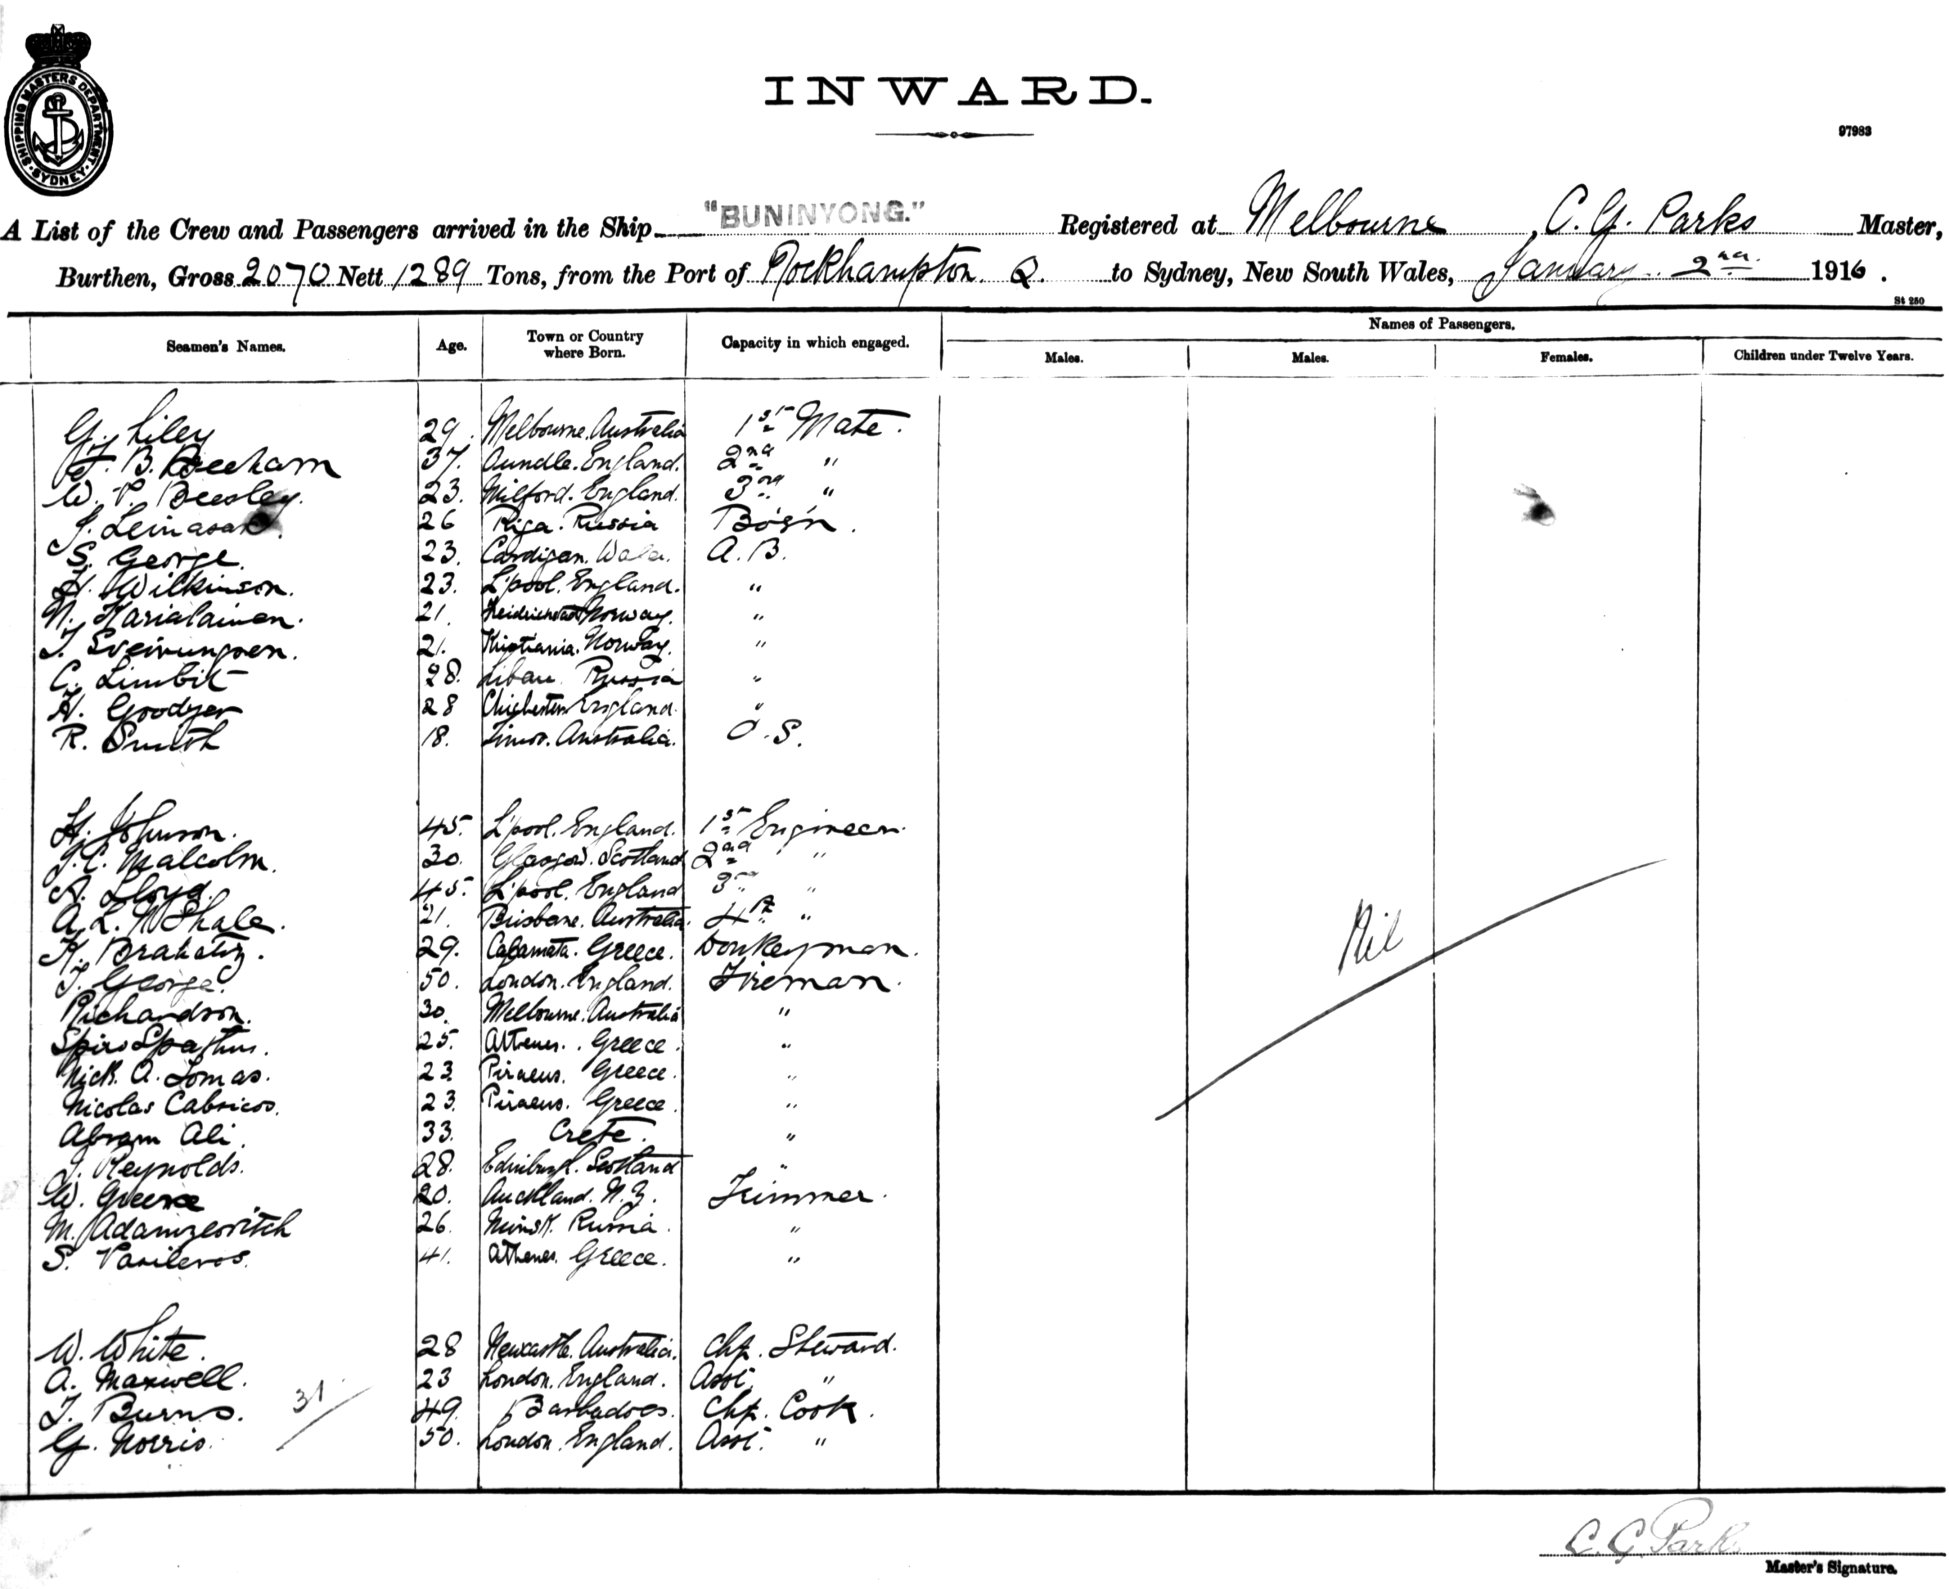 SHIPPING MASTERS DEPARTMENT. SYDNEY.
INWARD.
97983
A List of the Crew and Passengers arrived in the Ship "BUNINYONG." Registered at Melbourne, C. G. Parks Master,
Burthen, Gross 2070 Nett 1289 Tons, from the Port of Rockhampton. Q. to Sydney, New South Wales, January 2nd 1916.
St 250
Seamen's Names. Age. Town or Country where Born. Capacity in which engaged. Names of Passengers.
Males. Males. Females. Children under Twelve Years.
G. Liley 29. Melbourne. Australia 1st Mate.
J. B. Beeham 37. Aundle. England. 2nd "
W. P. Beesley. 23. Milford. England. 3rd "
J. 26 Riga. Russia Bos'n.
S. George. 23. Cardigan. Wales. A. B.
H. Wilkinson. 23. L'pool. England. "
N. Karialainen. 21. Norway. "
T. Sveinungsen. 21. Kristiania. Norway. "
C. Limbit 28. Libau Russia "
H. Goodyer 28 Chichester England. "
R. Smith 18. Australia. O. S.
H. Johnson. 45. L'pool. England. 1st Engineer.
J. C. Malcolm. 30. Glasgow. Scotland 2nd "
A. Lloyd. 45. L'pool. England 3rd "
A. L. McShale. 21. Brisbane. Australia. 4th "
K. 29. Calamata. Greece. Donkeyman.
T. George. 50. London. England. Fireman.
Richardson. 30. Melbourne. Australia "
Spiro Spathis. 25. Athenes. Greece. "
Nick. A. Tomas. 23. Piraeus. Greece. "
Nicolas Cabricos. 23. Piraeus. Greece. "
Abram Ali. 33. Crete. "
J. Reynolds. 28. Edinburgh. Scotland "
W. Greene 20. Auckland. N. Z. Trimmer.
M. Adamzevitch 26. Minsk. Russia. "
S. Vasileros. 41. Athenes. Greece. "
Nil
W. White. 28 Newcastle. Australia. Chf. Steward.
A. Maxwell. 23 London. England. Asst. "
J. Burns. 49. Barbadoes. Chf. Cook.
G. Norris. 50. London. England. Asst. "
31
C. G. Parks
Master's Signature.